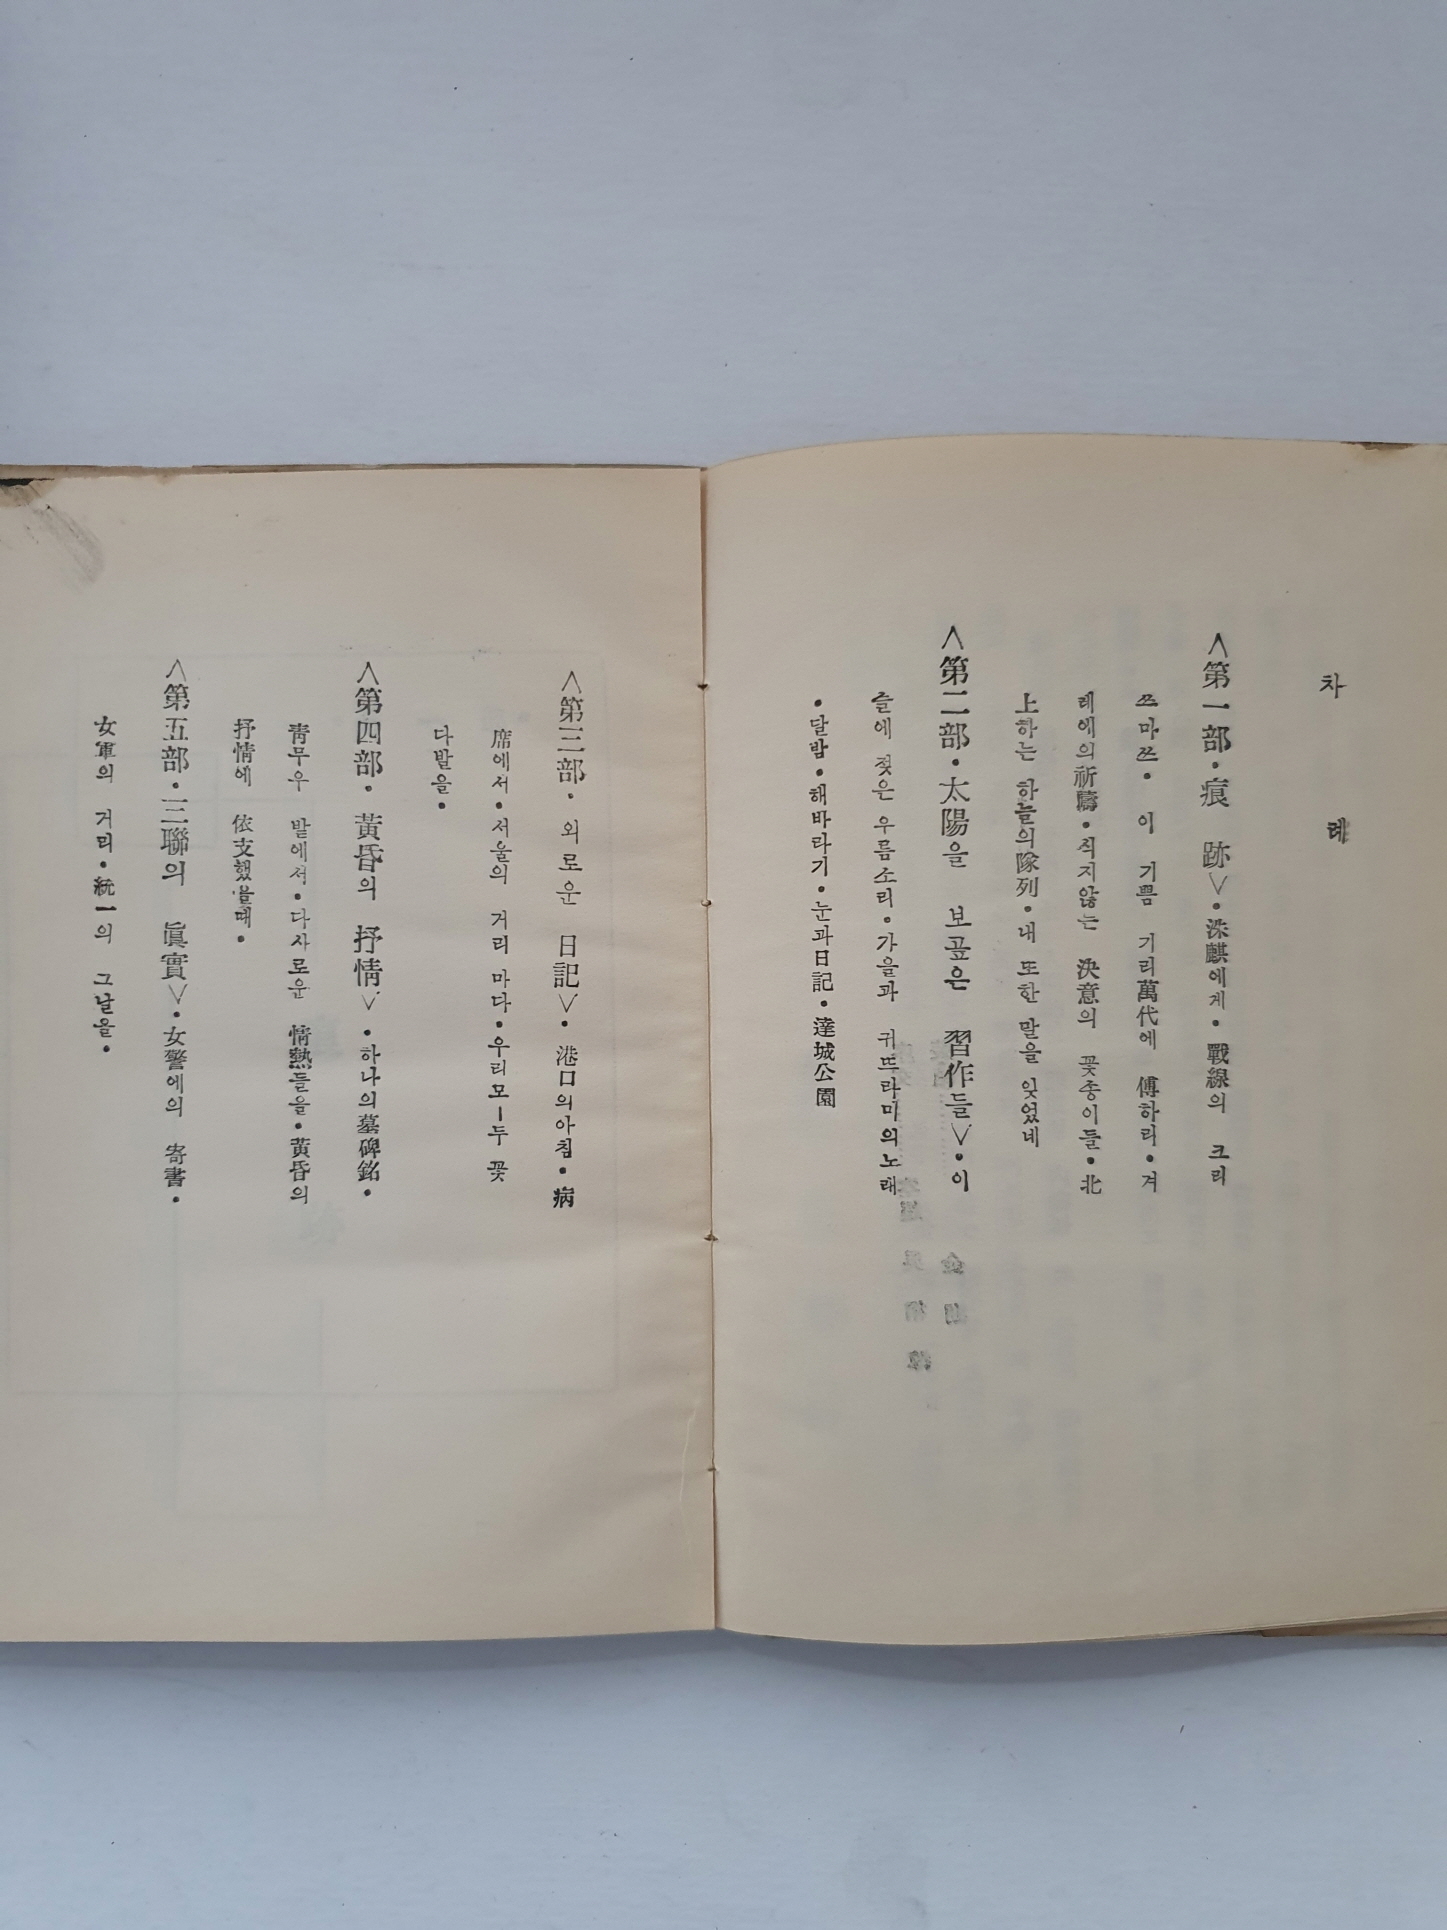 차 례
<第一部・痕 跡>・洙麒에게・戰線의 크리
쓰마쓰・이 기쁨 기리萬代에 傳하리・겨
레에의祈禱・식지않는 決意의 꽃송이들・北
上하는 하늘의隊列・내 또한 말을 잊었네
<第二部・太陽을 보곺은 習作들>・이
슬에 젖은 우름소리・가을과 귀뜨라미의노래
・달밤・해바라기・눈과日記・達城公園
<第三部・외로운 日記>・港口의아침・病
席에서・서울의 거리 마다・우리모ー두 꽃
다발을・
<第四部・黃昏의 抒情>・하나의墓碑銘・
靑무우 밭에서・다사로운 情熱들을・黃昏의
抒情에 依支했을때・
<第五部・三聯의 眞實>・女警에의 寄書・
女軍의 거리・統一의 그날을・